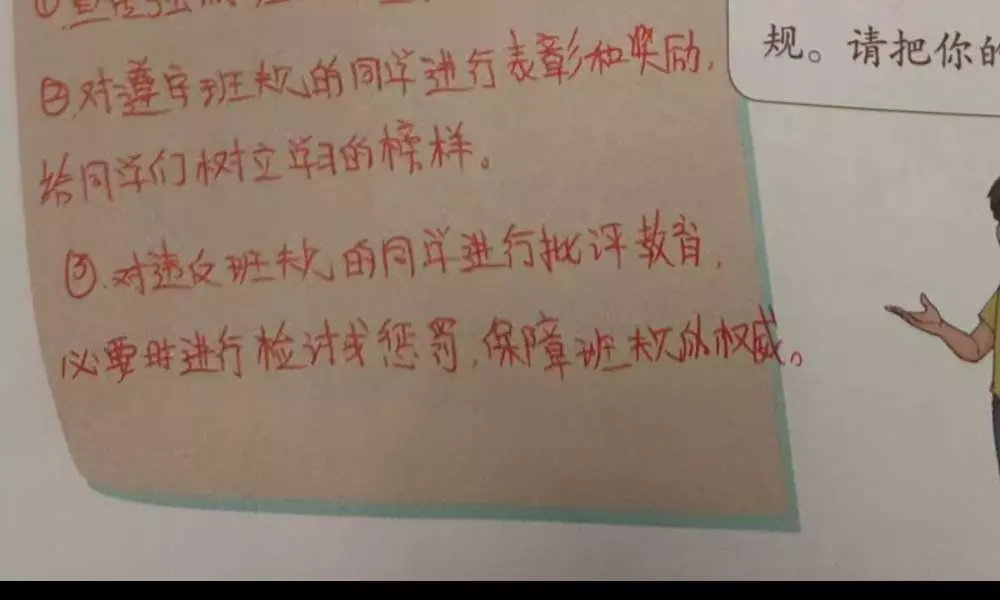 ②.对遵守班规的同学进行表彰和奖励,
给同学们树立学习的榜样。
③.对违反班规的同学进行批评教育,
必要时进行检讨或惩罚,保障班规的权威。
规。请把你的